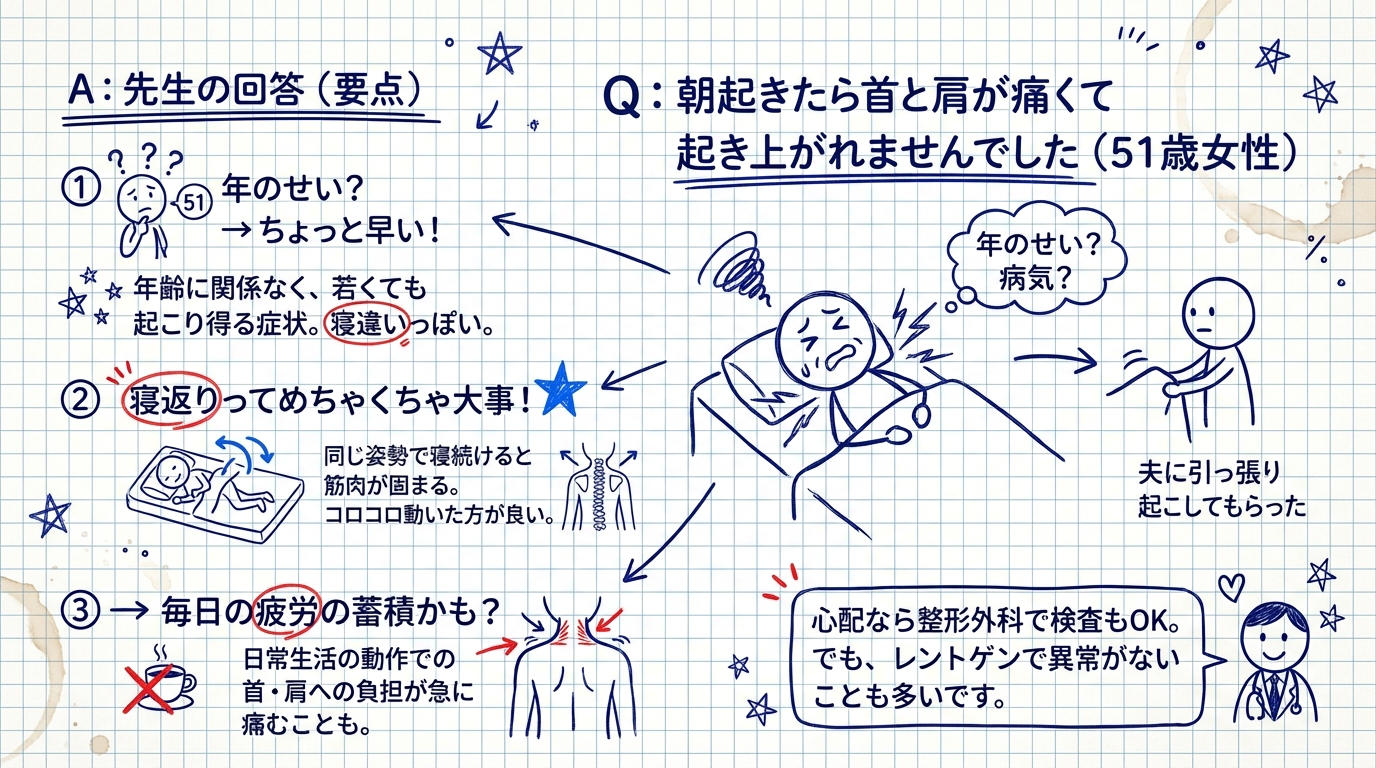 Q：朝起きたら首と肩が痛くて
起き上がれませんでした（51歳女性）
年のせい？
病気？
夫に引っ張り
起こしてもらった
A：先生の回答（要点）
① ? ? ? 51 年のせい？
→ ちょっと早い！
年齢に関係なく、若くても
起こり得る症状。寝違いっぽい。
② 寝返りってめちゃくちゃ大事！
同じ姿勢で寝続けると
筋肉が固まる。
コロコロ動いた方が良い。
③ → 毎日の疲労の蓄積かも？
日常生活の動作での
首・肩への負担が急に
痛むことも。
心配なら整形外科で検査もOK。
でも、レントゲンで異常がない
ことも多いです。